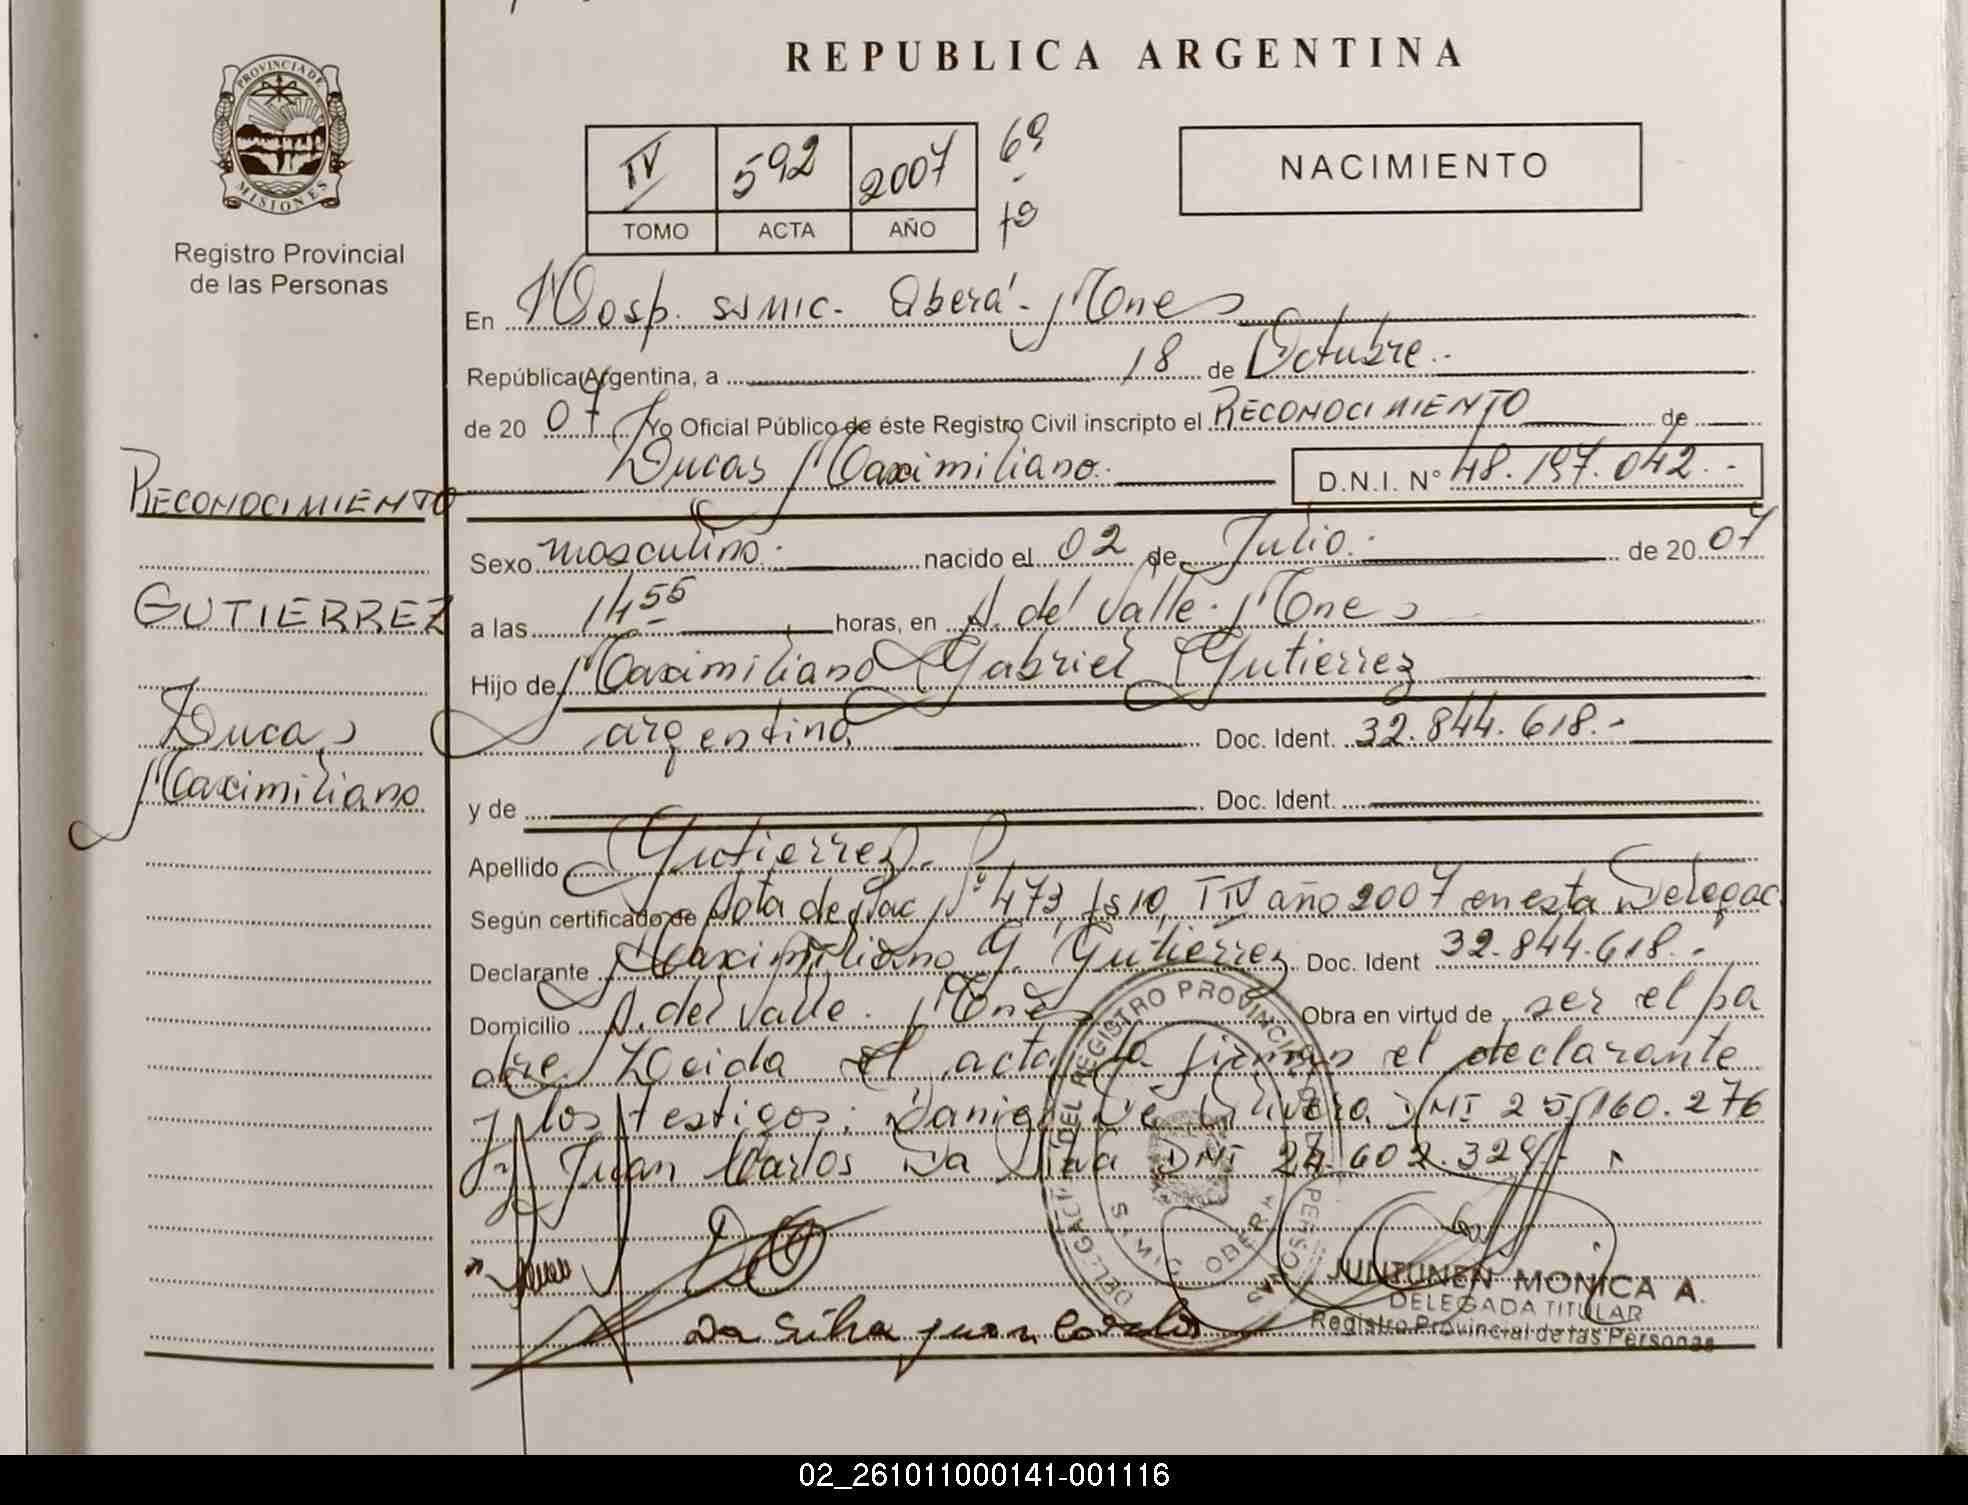 REPUBLICA ARGENTINA
PROVINCIA DE
MISIONES
Registro Provincial
de las Personas
IV 592 2007 69
TOMO ACTA AÑO
NACIMIENTO
En Hosp. SAMIC. Oberá - Mones
República Argentina, a 18 de Octubre
de 20 07 Yo Oficial Público de éste Registro Civil inscripto el RECONOCIMIENTO de
Lucas Maximiliano. D.N.I. N° 48.197.042.-
RECONOCIMIENTO
Sexo masculino. nacido el 02 de Julio. de 20 07
GUTIERREZ
a las 14 55 horas, en A. del Valle. Mones
Hijo de Maximiliano Gabriel Gutierrez
Lucas
argentino, Doc. Ident. 32.844.618.-
Maximiliano
y de Doc. Ident.
Apellido Gutierrez.
Según certificado de Nota de Nac N° 473, fs 10, T IV año 2007 en esta Delegac.
Declarante Maximiliano G. Gutierrez Doc. Ident 32.844.618.-
Domicilio A. del Valle. Mones Obra en virtud de ser el pa
dre. Leida el acta la firman el declarante
y los testigos: Daniel De Olivera DNI 25.160.276
y Juan Carlos Da Silva DNI 24.602.329
Da Silva Juan Carlos
JUNTUNEN MONICA A.
DELEGADA TITULAR
Registro Provincial de las Personas
02_261011000141-001116